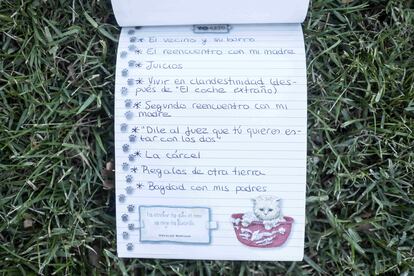 * El vecino y mi barro
* El reencuentro con mi madre
* Juicios
* Vivir en clandestinidad (des-
pués de "El coche extraño)
* Segundo reencuentro con mi
madre
* "Dile al juez que tú quieres es-
tar con los dos"
* La cárcel
* Regalos de otra tierra
* Bagdad con mis padres